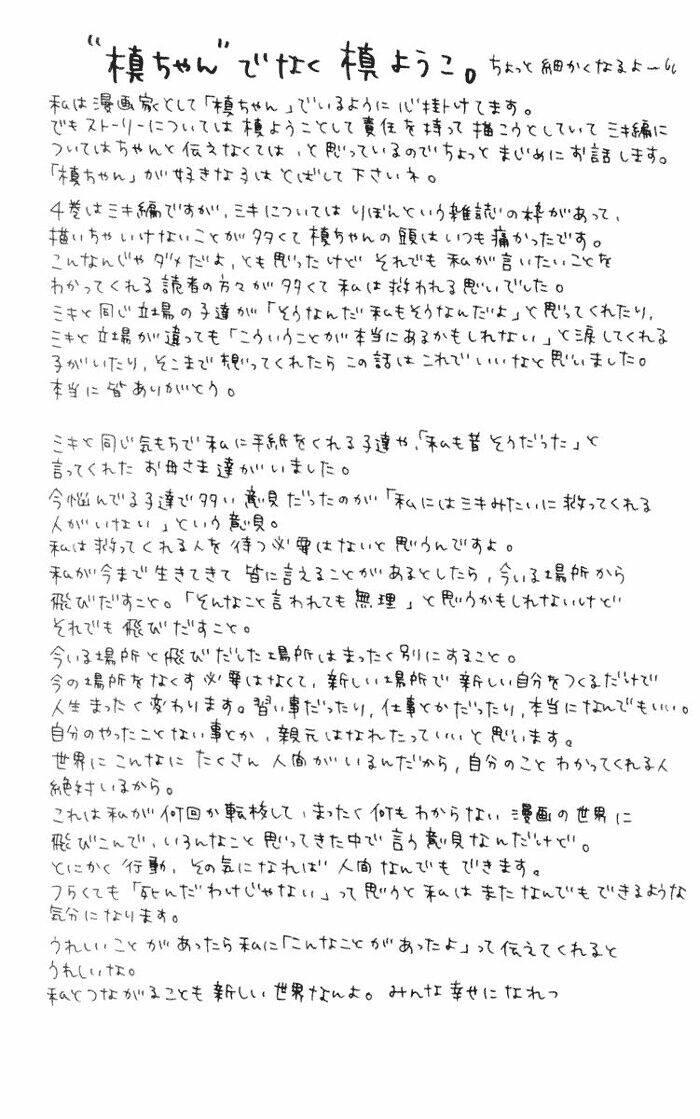 "槙ちゃん"でなく 槙ようこ。 ちょっと細かくなるよー
私は漫画家として「槙ちゃん」でいるように心掛けてます。
でもストーリーについては 槙ようことして責任を持って描こうとしていて ミキ編に
ついてはちゃんと伝えなくては、と思っているのでちょっとまじめにお話します。
「槙ちゃん」が好きな子はとばして下さいネ。
4巻はミキ編ですが、ミキについては りぼんという雑誌の枠があって、
描いちゃいけないことが多くて槙ちゃんの頭はいつも痛かったです。
こんなんじゃダメだよ、とも思ったけど それでも私が言いたいことを
わかってくれる読者の方々が多くて私は救われる思いでした。
ミキと同じ立場の子達が「そうなんだ私もそうなんだよ」と思ってくれたり、
ミキと立場が違っても「こういうことが本当にあるかもしれない」と涙してくれる
子がいたり、そこまで想ってくれたら この話はこれでいいなと思いました。
本当に皆ありがとう。
ミキと同じ気もちで私に手紙をくれる子達や、「私も昔そうだった」と
言ってくれた お母さま達がいました。
今悩んでる子達で多い意見だったのが「私にはミキみたいに救ってくれる
人がいない」という意見。
私は救ってくれる人を待つ必要はないと思うんですよ。
私が今まで生きてきて 皆に言えることがあるとしたら、今いる場所から
飛びだすこと。「そんなこと言われても無理」と思うかもしれないけど
それでも飛びだすこと。
今いる場所と飛びだした場所はまったく別にすること。
今の場所をなくす必要はなくて、新しい場所で新しい自分をつくるだけで
人生まったく変わります。習い事だったり、仕事とかだったり、本当になんでもいい。
自分のやったことない事とか、親元はなれたっていいと思います。
世界にこんなに たくさん 人間がいるんだから、自分のことわかってくれる人
絶対いるから。
これは私が何回か転校して、まったく何もわからない漫画の世界に
飛びこんで、いろんなこと思ってきた中で言う意見なんだけど。
とにかく行動、その気になれば人間なんでもできます。
つらくても「死んだわけじゃない」って思うと私はまたなんでもできるような
気分になります。
うれしいことがあったら私に「こんなことがあったよ」って伝えてくれると
うれしいな。
私とつながることも新しい世界なんよ。みんな幸せになれっ